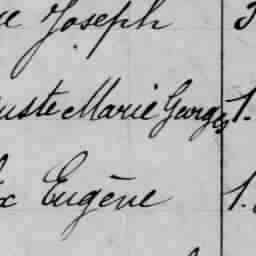 Joseph
uste Marie Georges 1.
x Eugène 1.